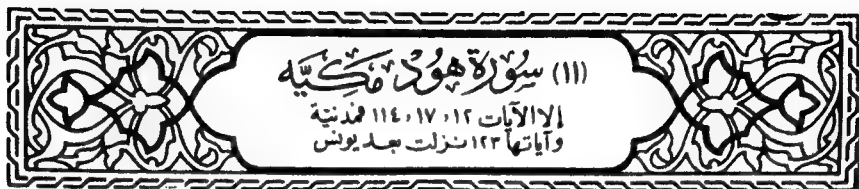 (١١) سُورَة هُود مَكِيَّه
إلا الآيات ١٢ ، ١٧ ، ١١٤ فمدنية
وآياتها ١٢٣ نزلت بعد يونس